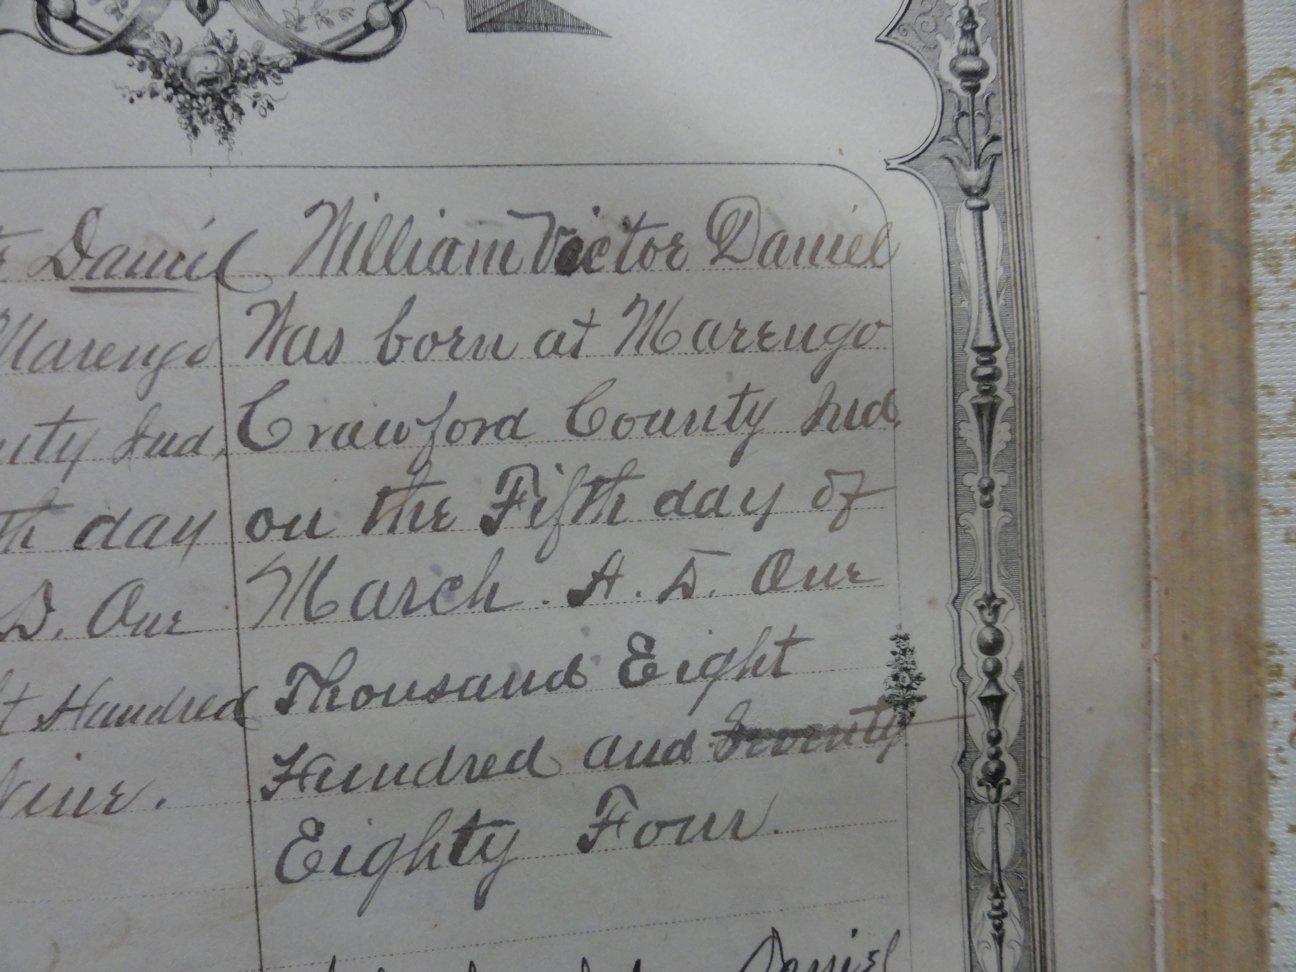 Daniel
Marengo
Ind,
th day
D. One
Hundred
Nine.
William Victor Daniel
Was born at Marengo
Crawford County Ind.
on the Fifth day of
March. A. D. One
Thousand Eight
Hundred and Seventy
Eighty Four.
Daniel